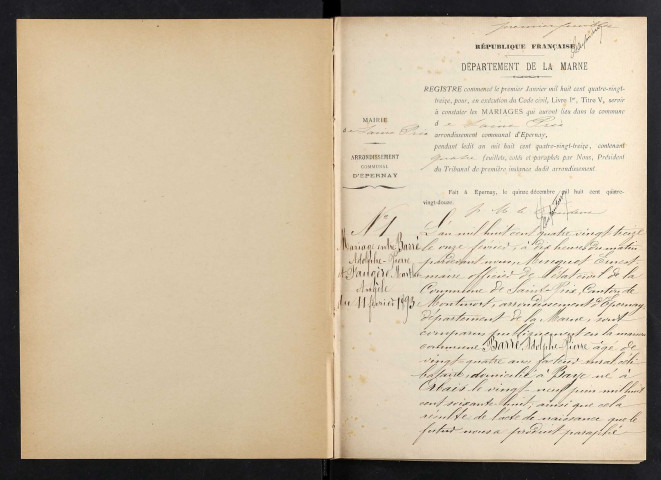 premier feuillet
RÉPUBLIQUE FRANÇAISE
DÉPARTEMENT DE LA MARNE
REGISTRE commencé le premier Janvier mil huit cent quatre-vingt-
treize, pour, en exécution du Code civil, Livre Ier, Titre V, servir
à constater les MARIAGES qui auront lieu dans la commune
d e Saint Prix
arrondissement communal d'Epernay,
pendant ledit an mil huit cent quatre-vingt-treize, contenant
quatre feuillets, cotés et paraphés par Nous, Président
du Tribunal de première instance dudit arrondissement
Fait à Epernay, le quinze décembre mil huit cent quatre-
vingt-douze.
MAIRIE
de Saint Prix
ARRONDISSEMENT
COMMUNAL
D'EPERNAY
N° 1
Mariage entre Barré
Adolphe-Pierre
Angèle
du 11 février 1893
L'an mil huit cent quatre vingt treize
le onze février à dix heures du matin
pardevant nous, Ernest
maire officier de l'état civil de la
Commune de Saint-Prix, Canton de
Montmort, arrondissement d'Epernay,
département de la Marne, sont
comparus publiquement en la maison
commune, Barré, Adolphe-Pierre âgé de
vingt quatre ans
domicilié à Baye né à
Orbais le vingt neuf juin mil huit
cent soixante huit, ainsi que cela
résulte de l'acte de naissance que le
futur nous a produit paraphé